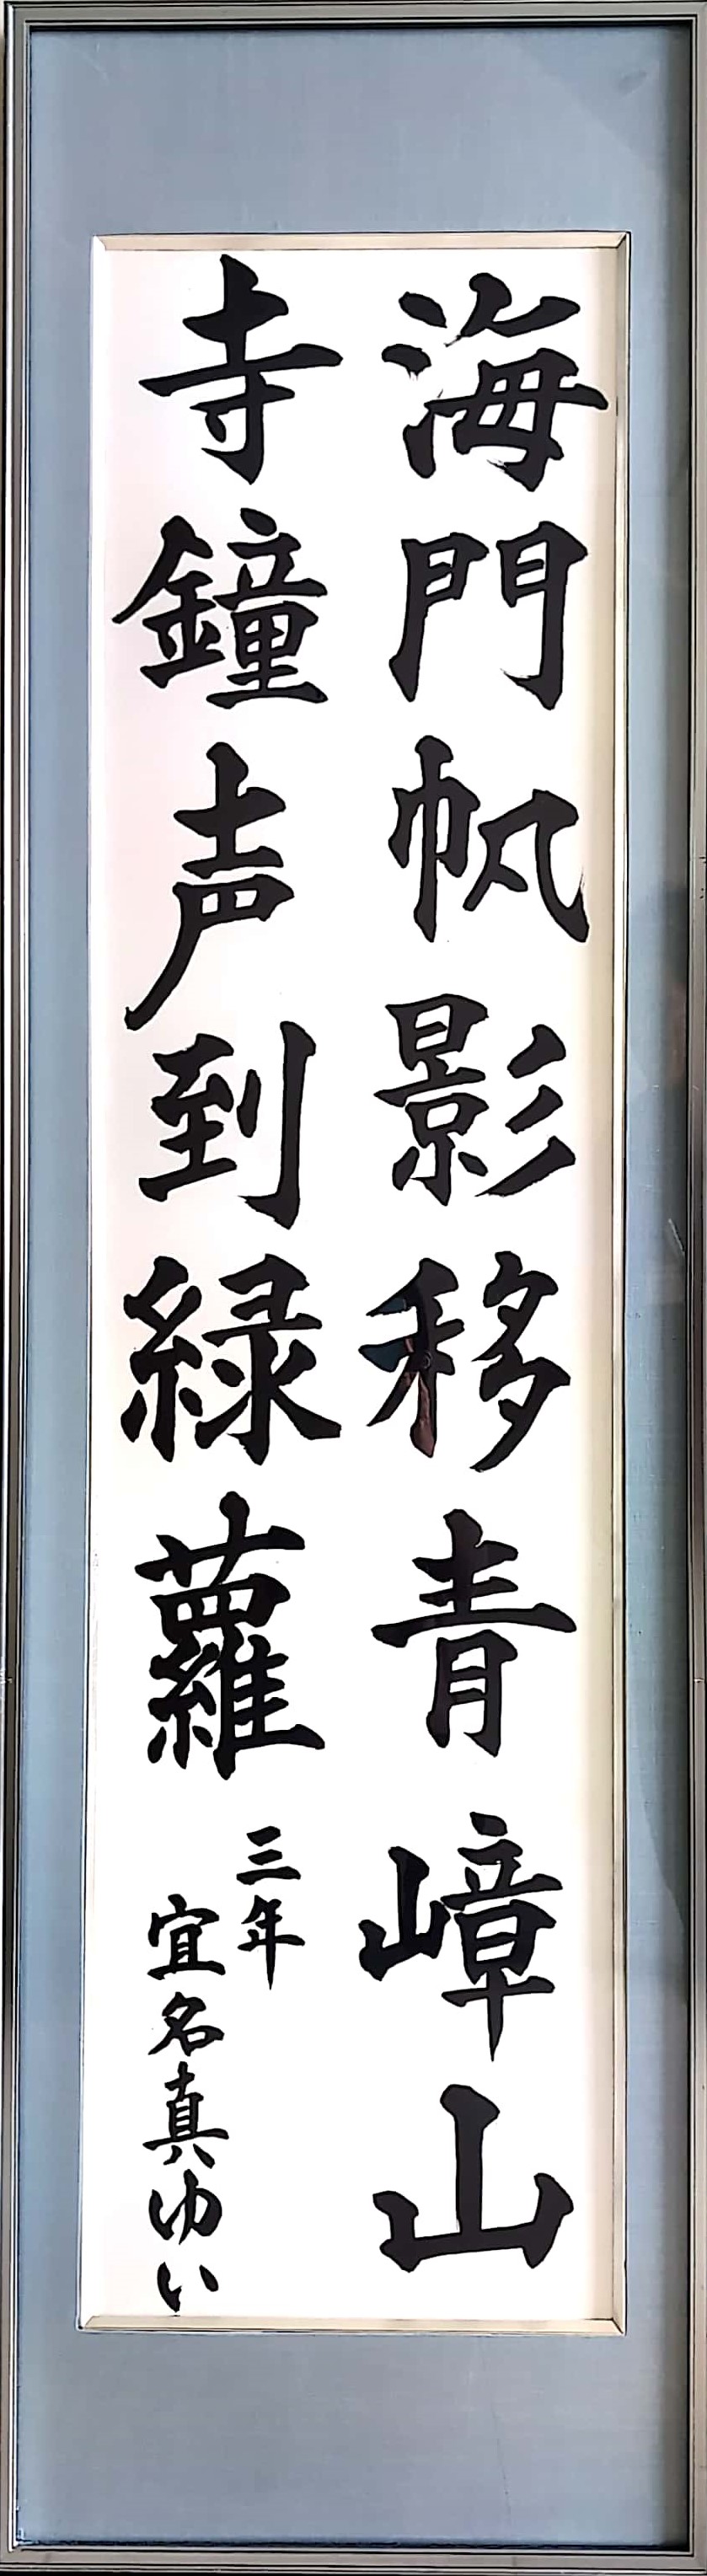 海門帆影移青嶂山
寺鐘声到緑蘿
三年
宜名真ゆい